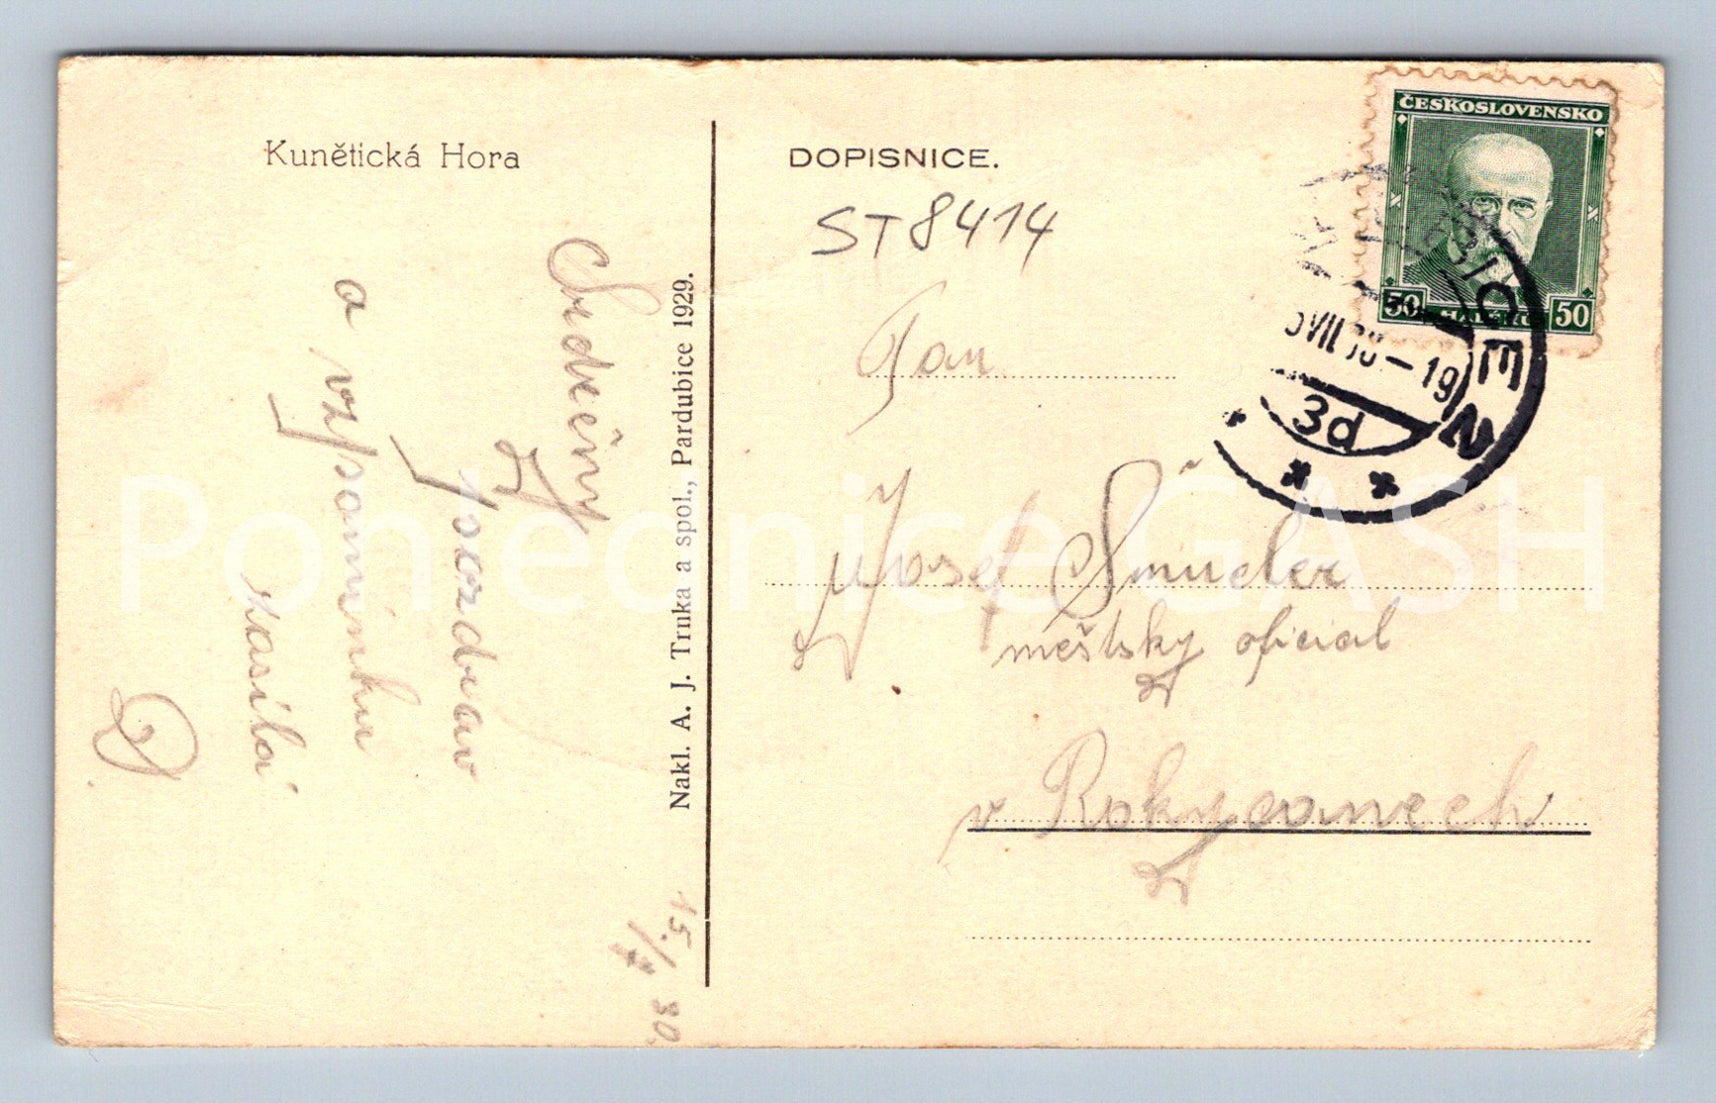 Kunětická Hora
DOPISNICE.
ST8414
ČESKOSLOVENSKO
50 HALÉŘŮ 50
VII 30 - 19
3d
Srdečný
pozdrav
a vzpomínku
zasílá
15./7 30.
Nakl. A. J. Trnka a spol., Pardubice 1929.
Pan
Josef Šmucler
městský oficial
v Rokycanech
Pohlednice GASH